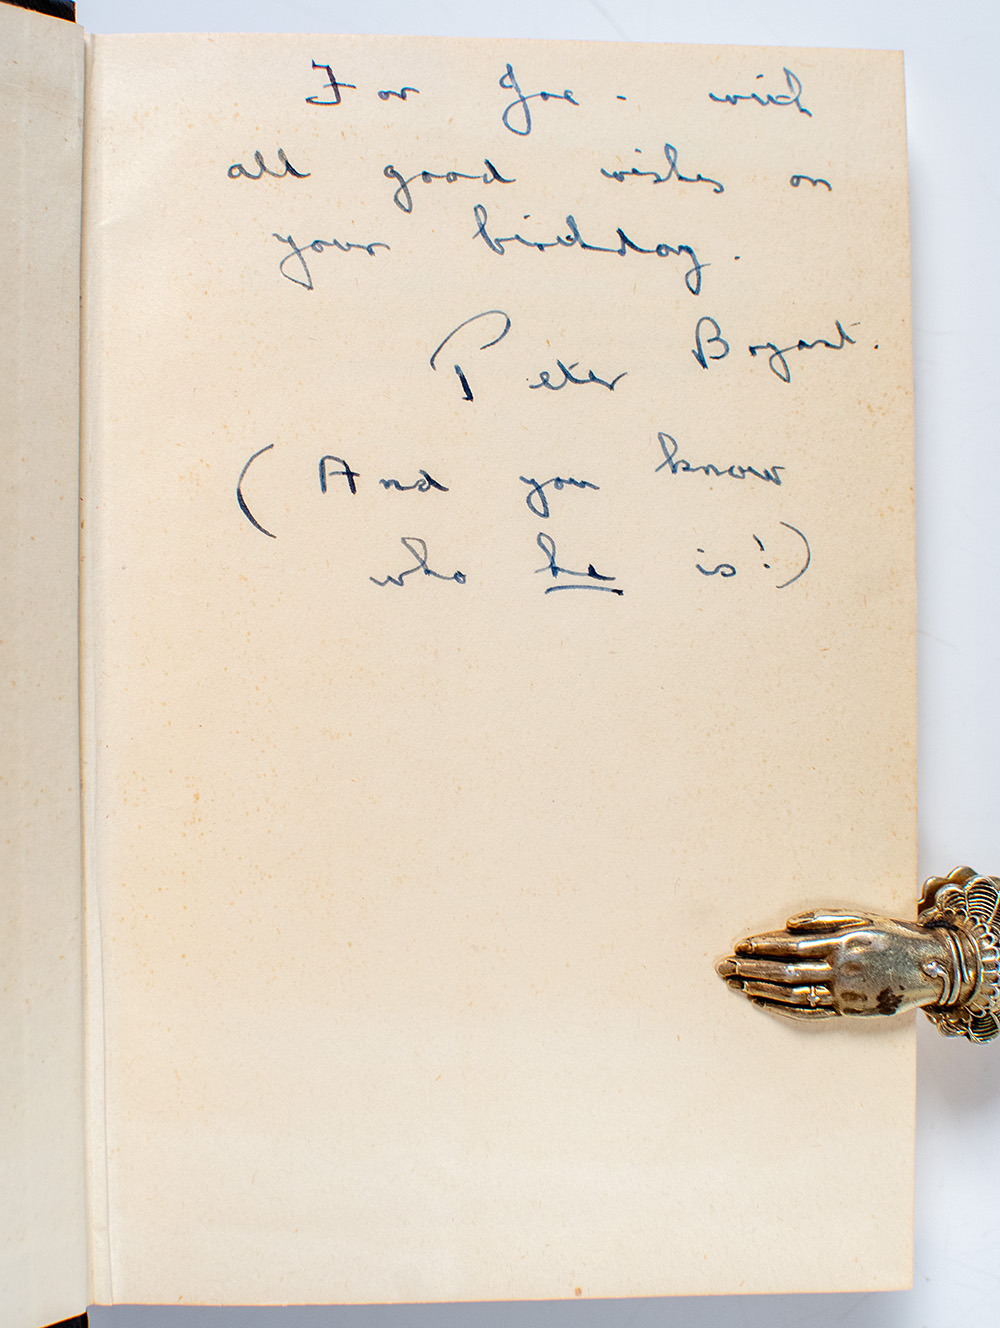 For Joe - with
all good wishes on
your birthday.
Peter Bryant.
(And you know
who he is!)